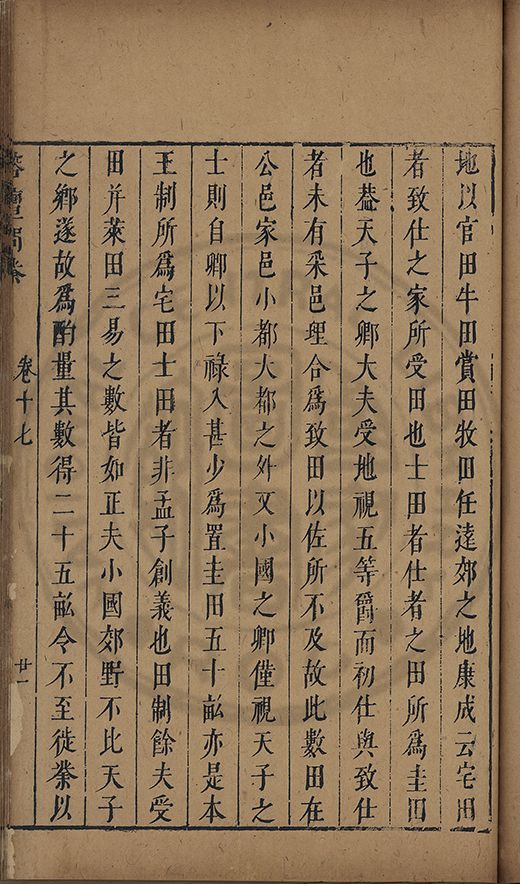 地以官田牛田賞田牧田任遠郊之地康成云宅田
者致仕之家所受田也士田者仕者之田所爲圭田
也葢天子之卿大夫受地視五等爵而初仕與致仕
者未有采邑理合爲致田以佐所不及故此數田在
公邑家邑小都大都之外又小國之卿僅視天子之
士則自卿以下祿入甚少爲置圭田五十畝亦是本
王制所爲宅田士田者非孟子創義也田制餘夫受
田并萊田三易之數皆如正夫小國郊野不比天子
之鄉遂故爲酌量其數得二十五畝令不至徙業以
卷十七
廿一